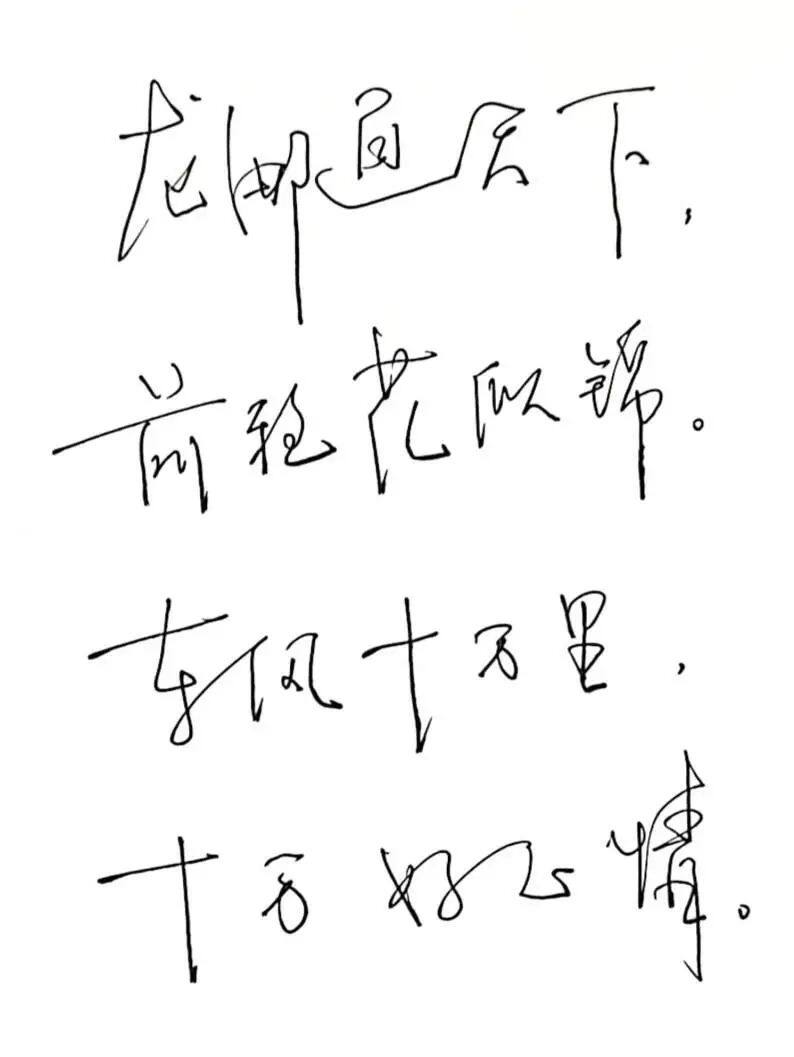 龙邮通天下，
前程花似锦。
东风十万里，
十万好心情。